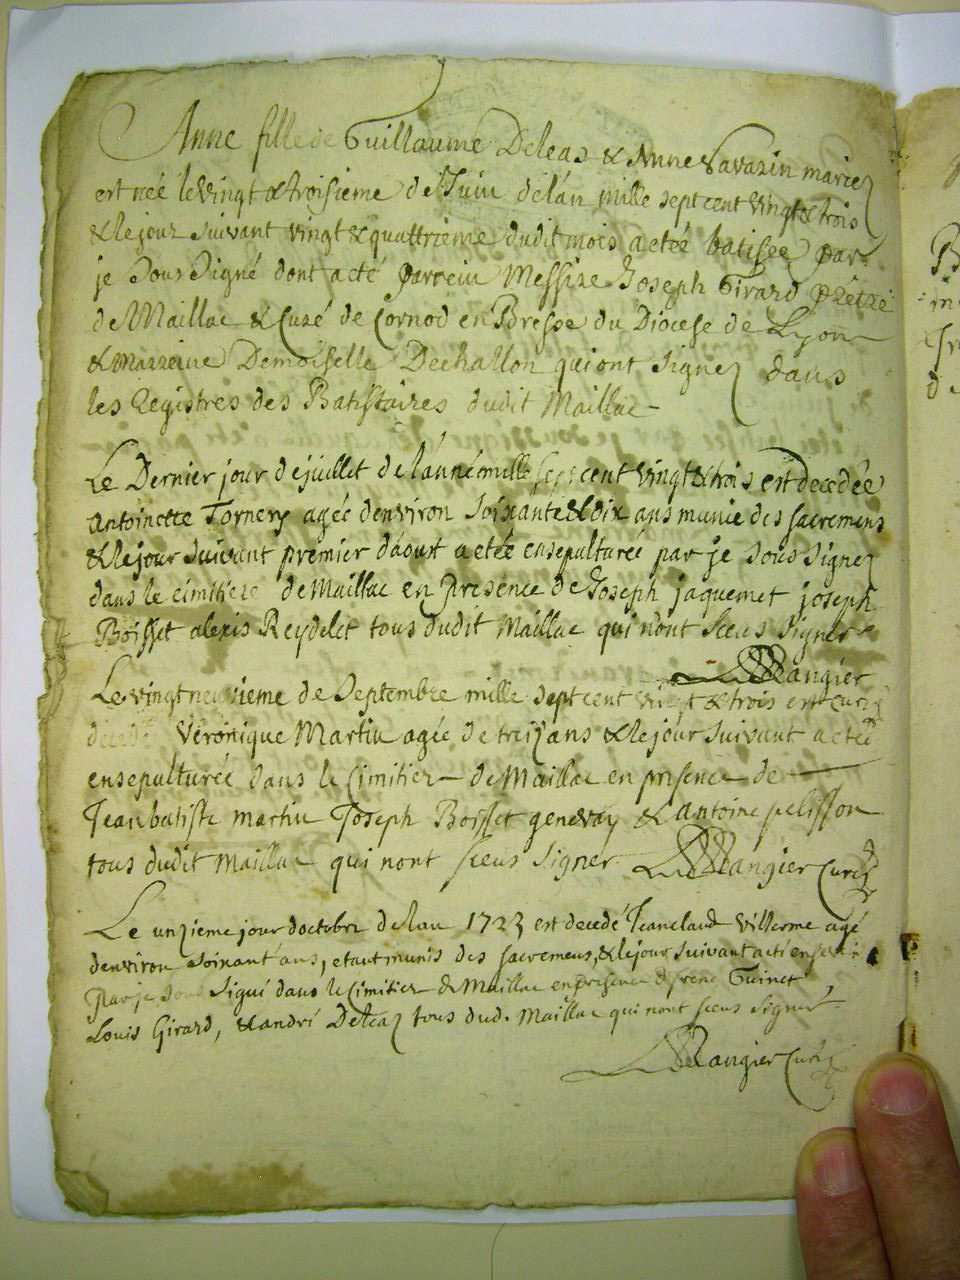 Anne fille de Guillaume Deleas & Anne Savarin mariez
est née le vingt & troisieme de Juin de l'an mille sept cent vingt & trois
& le jour suivant vingt & quattrieme dudit mois a etée batisée par
je sous signé dont a eté parrein Messire Joseph Girard prètre
de Maillac & Curé de Cornod en Bresse du Diocese de Lyon
& marreine Demoiselle Dechallon qui ont signez dans
les Registres des Batistaires dudit Maillac
Le Dernier jour de juillet de l'année mille sept cent vingt & trois est decedée
antoinette Tornery agée d'environ soixante & dix ans munie des sacremens
& le jour suivant premier d'aoust a etée ensepulturée par je sous signez
dans le cimitiere de Maillac en presence de Joseph jaquemet joseph
Boisset alexis Reydelet tous dudit Maillac qui n'ont sceus signer
Mangier
Le vingt neuvieme de Septembre mille sept cent vingt & trois est curez
decedée Véronique Martin agée de treize ans & le jour suivant a etée
ensepulturée dans le cimitier de Maillac en presence de
Jean batiste martin Joseph Boisset genevay & antoine pelisson
tous dudit Maillac qui n'ont sceus signer Mangier Curez
Le unzieme jour d'octobre de l'an 1723 est decedé Jeanclaud Villerme agé
d'environ soixant'ans, etant munis des sacremens, & le jour suivant a eté
par je sous signé dans le cimitier de Maillac en presence de Guinet
Louis Girard, & andré Deleaz tous dud. Maillac qui n'ont sceus signer
Mangier Curez